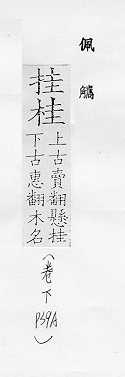 佩觿
挂桂
上古賣翻懸挂
下古惠翻木名
(卷下 P39A)